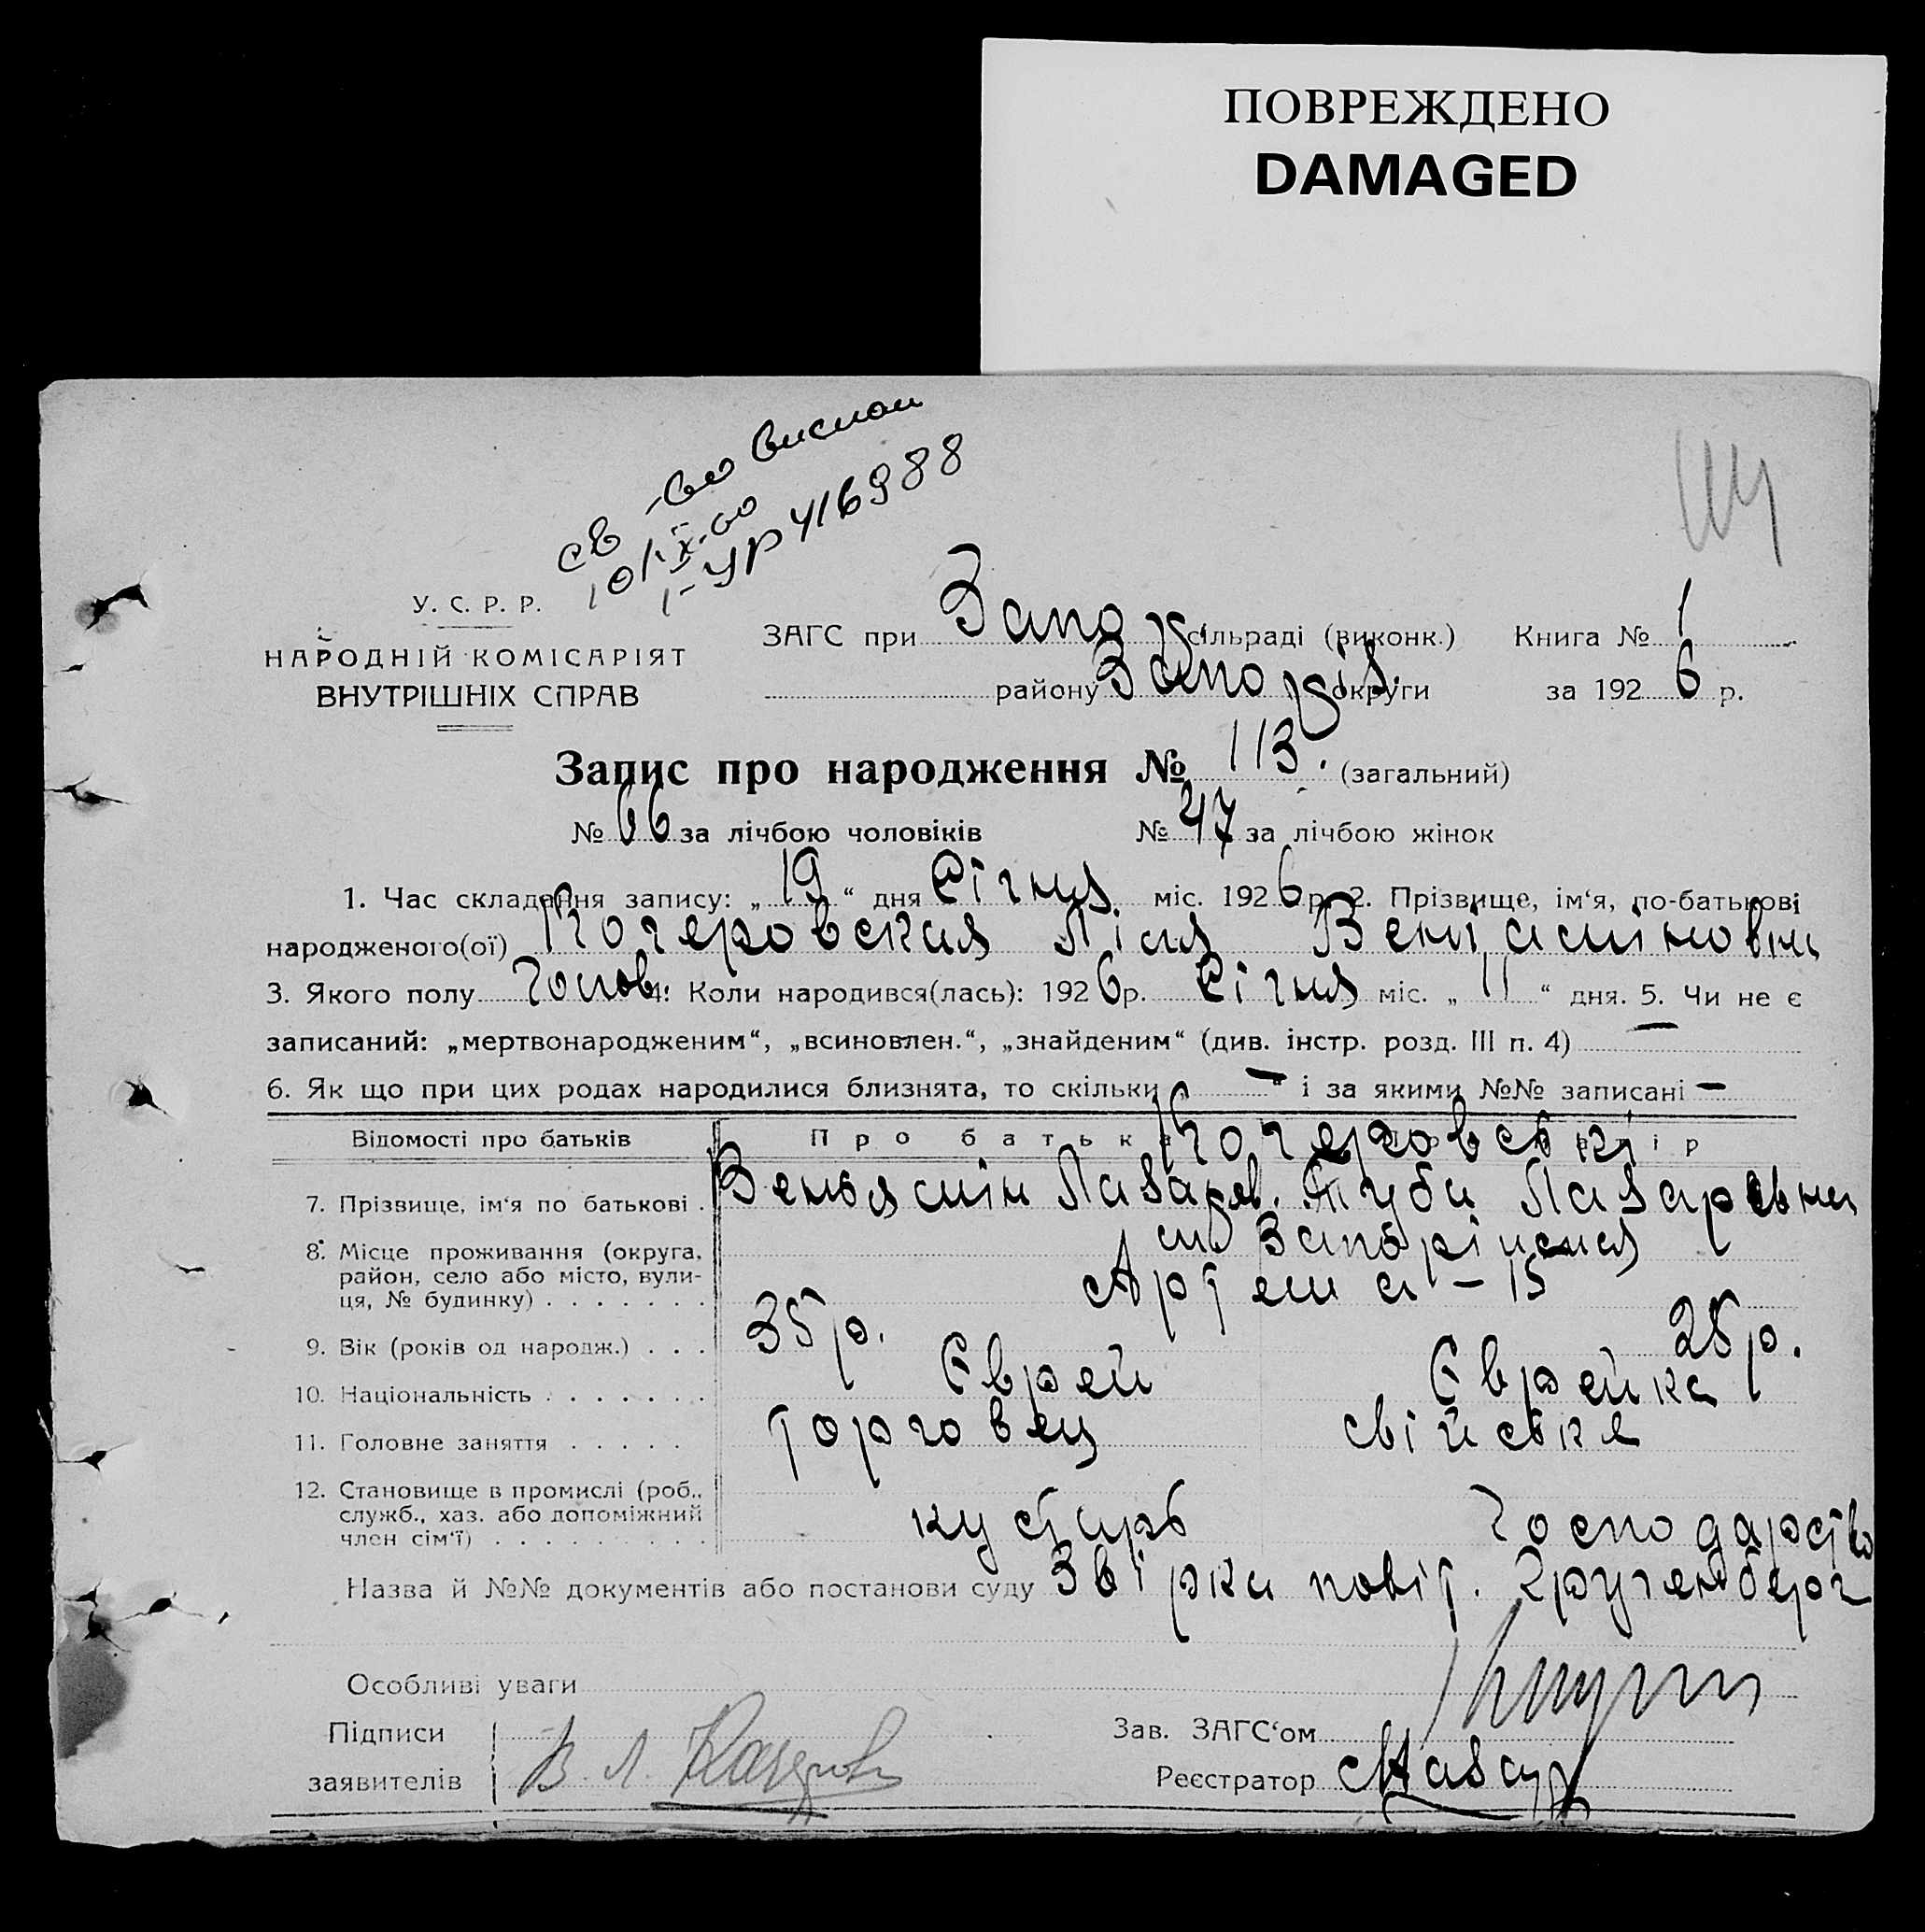 ПОВРЕЖДЕНО
DAMAGED
св-во
10/IX-60
I-УР 416988
У. С. Р. Р.
НАРОДНІЙ КОМІСАРІЯТ
ВНУТРІШНІХ СПРАВ
ЗАГС при Запор сільраді (виконк.) Книга № 1
району Запоріз. округи за 1926 р.
Запис про народження № 113. (загальний)
№ 66 за лічбою чоловіків № 47 за лічбою жінок
1. Час складання запису: „19“ дня Січня міс. 1926 р. 2. Прізвище, ім‘я, по-батькові
народженого(ої) Кочеровская Ліля Веніаміновна
3. Якого полу 4. Коли народився(лась): 1926 р. Січня міс. „11“ дня. 5. Чи не є
записаний: „мертвонародженим“, „всиновлен.“, „знайденим“ (див. інстр. розд. III п. 4) —
6. Як що при цих родах народилися близнята, то скільки „—“ і за якими №№ записані —
Відомості про батьків Про батька Кочеровські
7. Прізвище, ім‘я по батькові . Веньямін Лазаров. Туба Лазаревна
8. Місце проживання (округа, м Запоріжжя
район, село або місто, вули- Артема – 15
ця, № будинку) . . . . . . .
9. Вік (років од народж.) . . . 35 р. 28 р.
10. Національність . . . . . . . Єврей Єврейка
11. Головне заняття . . . . . торговец свійске
12. Становище в промислі (роб.,
служб., хаз. або допоміжний кустарь господарство
член сім‘ї) . . . . . . . . .
Назва й №№ документів або постанови суду Звірка повіт.
Особливі уваги
Підписи Зав. ЗАГС‘ом
заявителів В. Л. Реєстратор